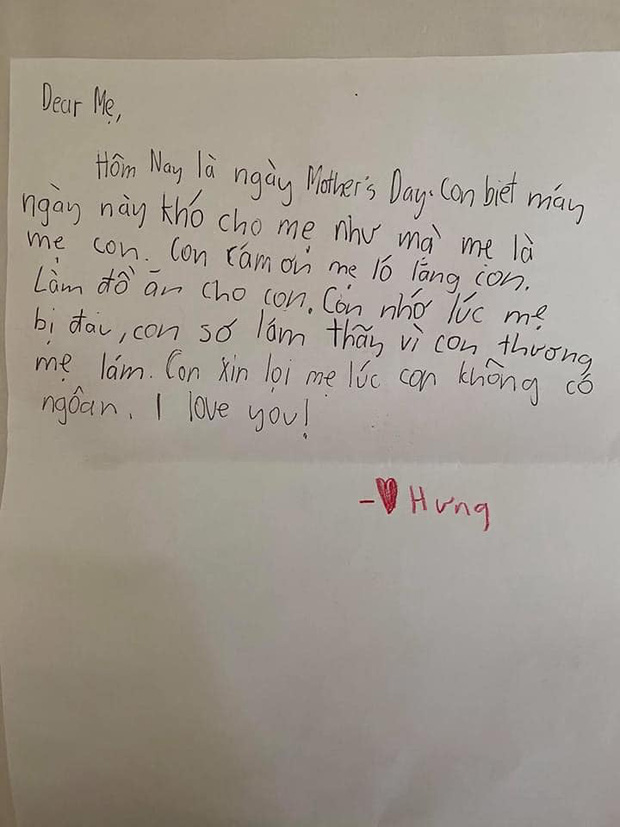 Dear Mẹ,
Hôm Nay là ngày Mother's Day. Con biết máy
ngày này khó cho mẹ như mà mẹ là
mẹ con. Con cám ơn mẹ ló lắng con.
Làm đồ ăn cho con. Còn nhớ lúc mẹ
bị đau, con sợ lám thãy vì con thương
mẹ lám. Con xin lọi mẹ lúc con không có
ngôan. I love you!
- ♥ Hưng